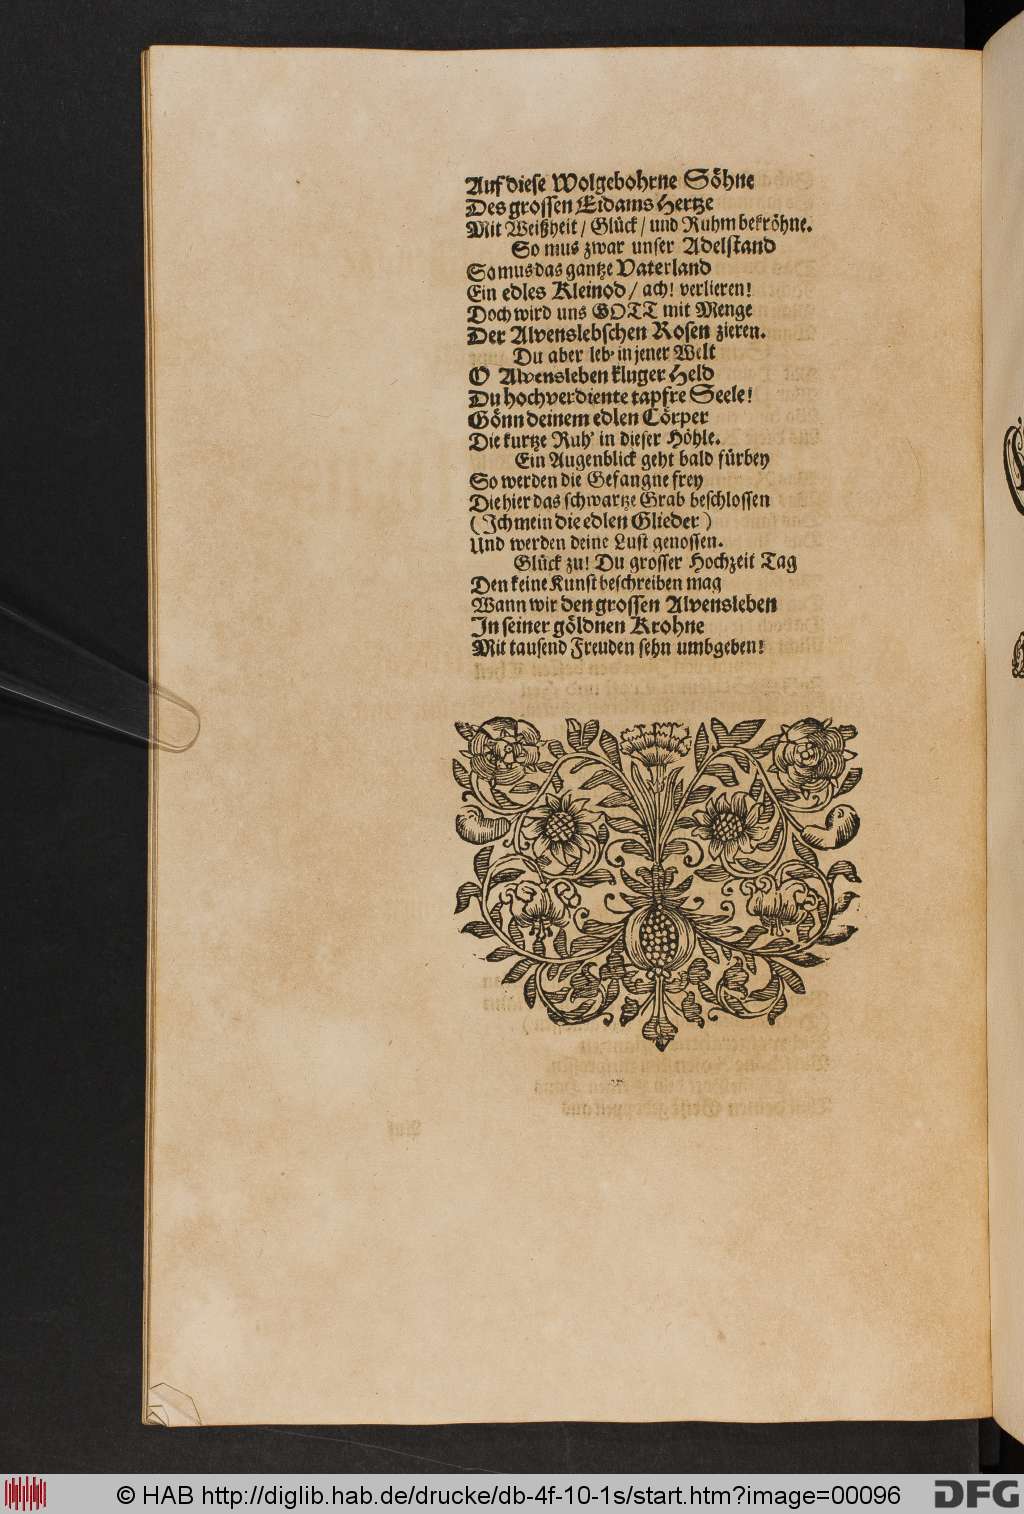 Auf diese Wolgebohrne Söhne
Des grossen Eidams Hertze
Mit Weißheit / Glück / und Ruhm bekröhne.
So mus zwar unser Adelstand
So mus das gantze Vaterland
Ein edles Kleinod / ach! verlieren!
Doch wird uns GOTT mit Menge
Der Alvenslebschen Rosen zieren.
Du aber leb' in jener Welt
O Alvensleben kluger Held
Du hochverdiente tapfre Seele!
Gönn deinem edlen Cörper
Die kurtze Ruh' in dieser Höhle.
Ein Augenblick geht bald fürbey
So werden die Gefangne frey
Die hier das schwartze Grab beschlossen
(Ich mein die edlen Glieder)
Und werden deine Lust genossen.
Glück zu! Du grosser Hochzeit Tag
Den keine Kunst beschreiben mag
Wann wir den grossen Alvensleben
In seiner göldnen Krohne
Mit tausend Freuden sehn umbgeben!
© HAB http://diglib.hab.de/drucke/db-4f-10-1s/start.htm?image=00096
DFG